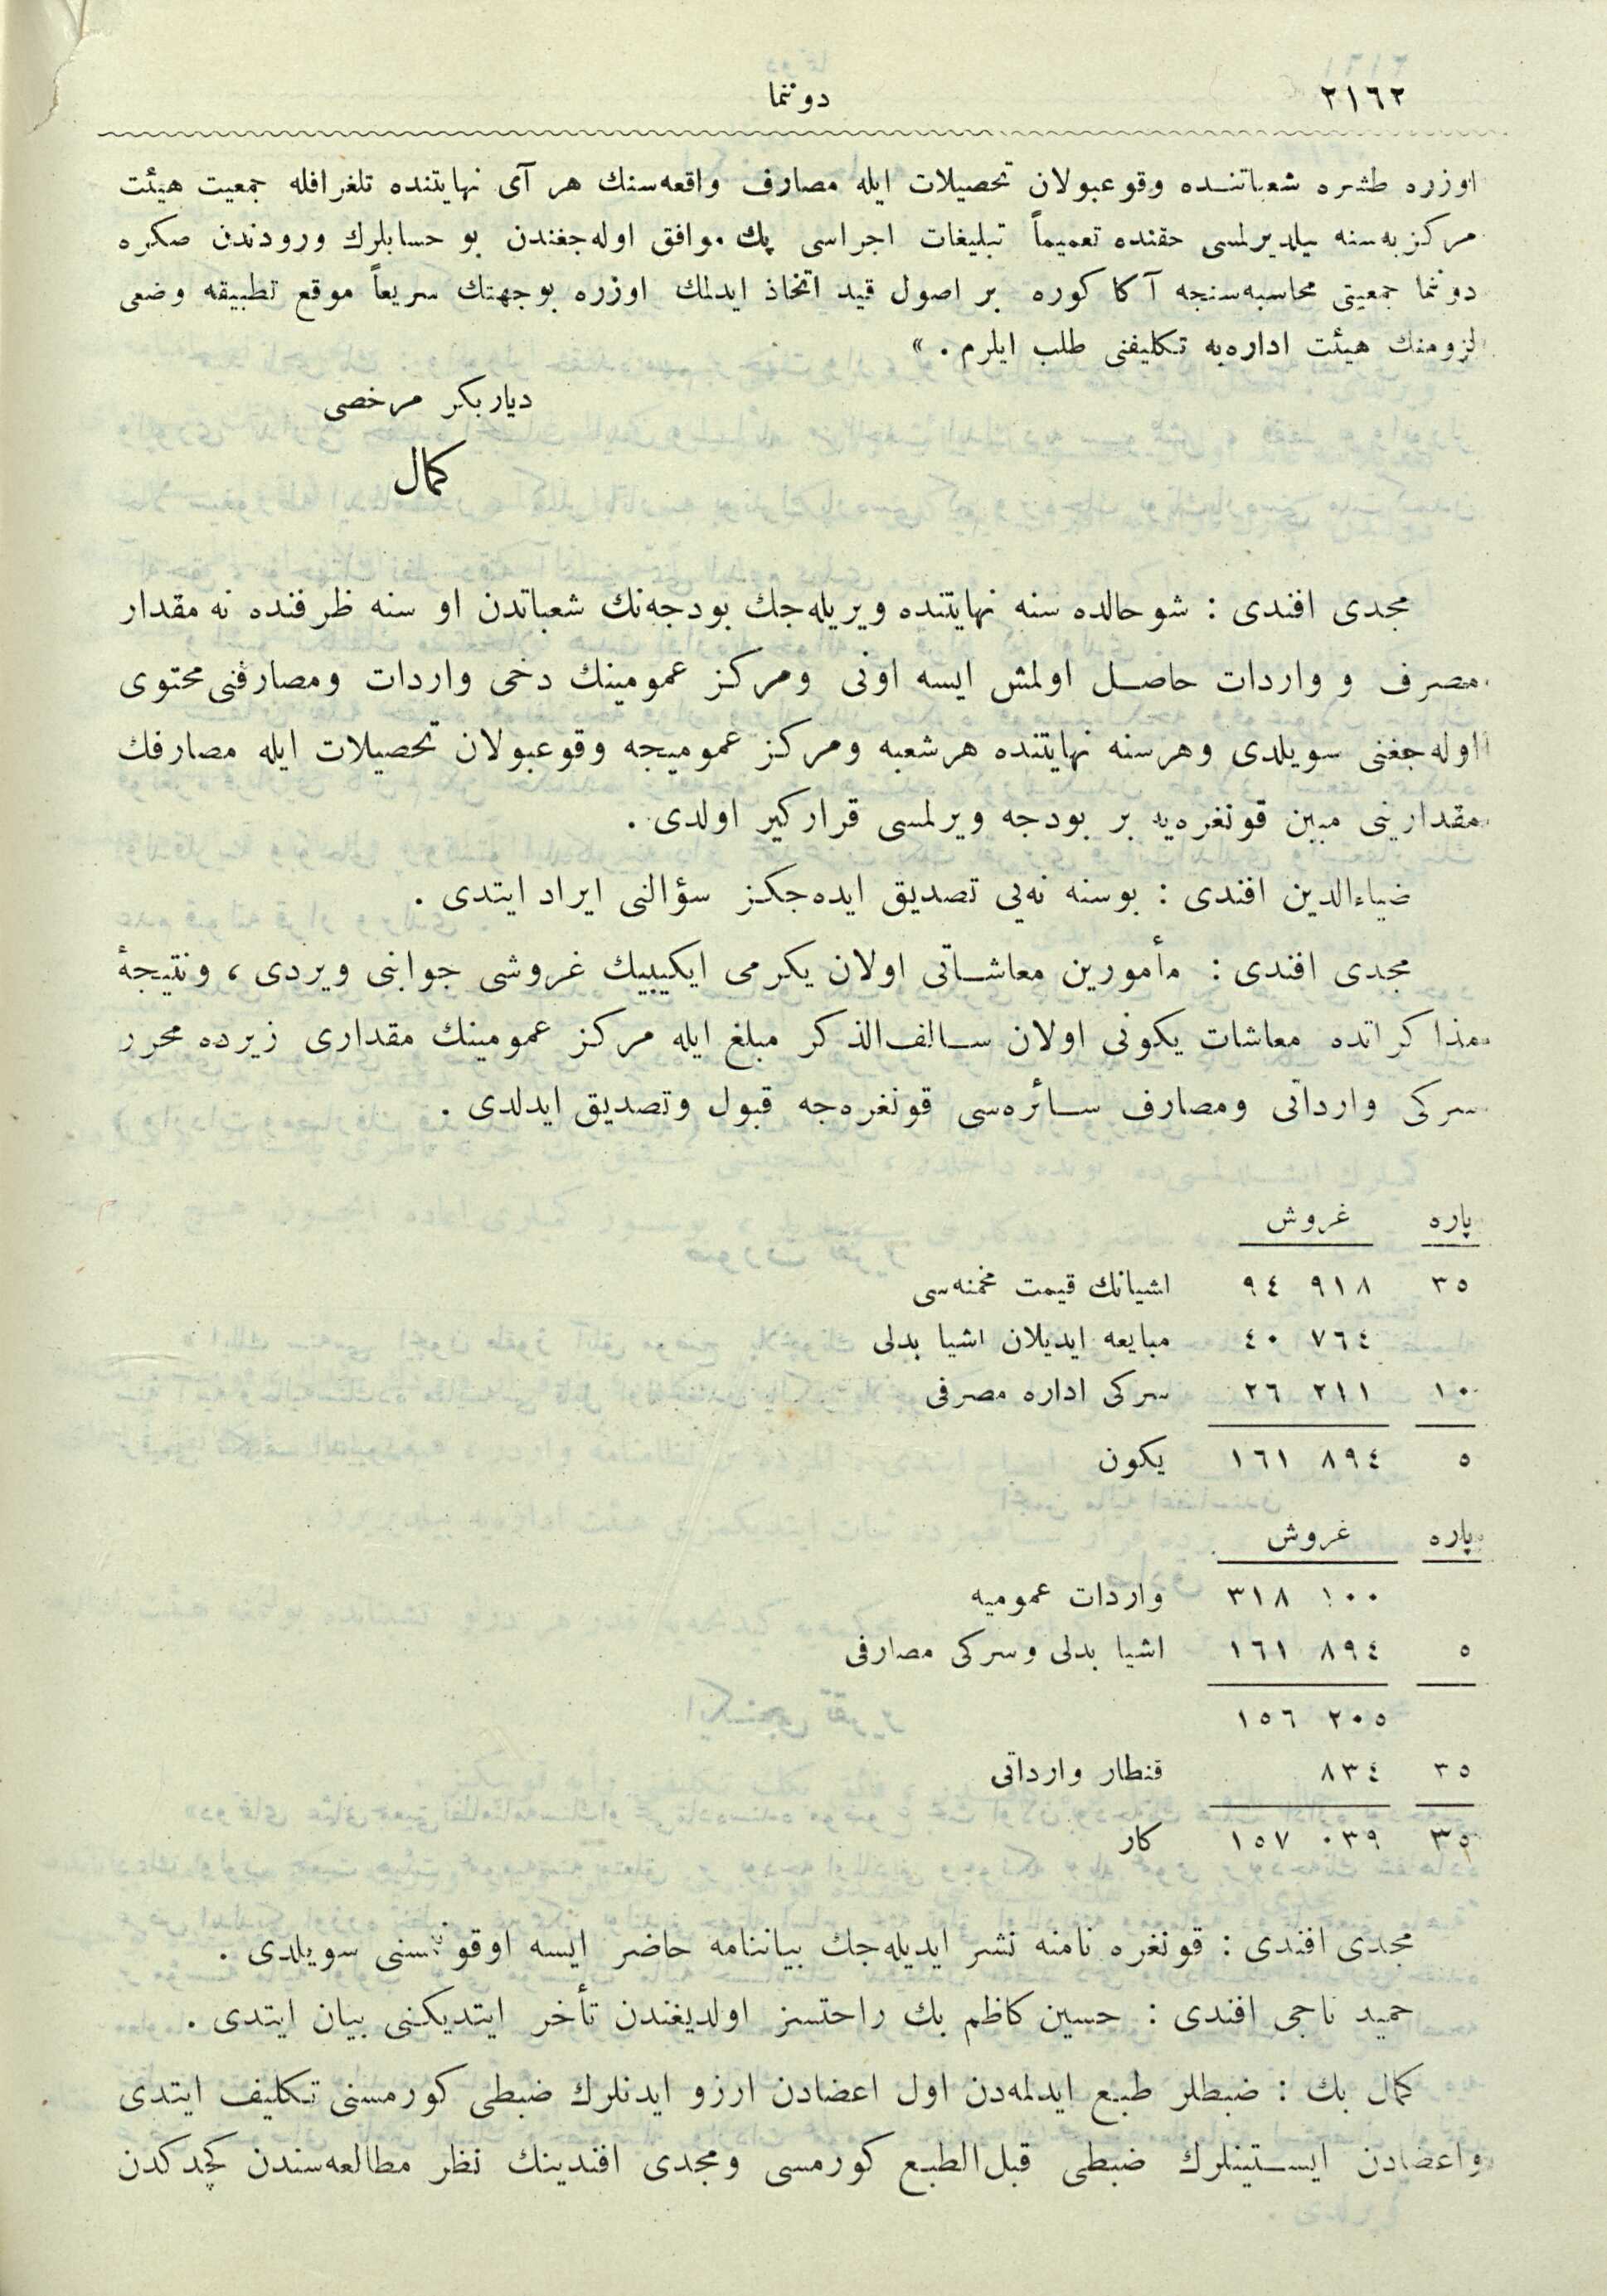 ٢١٦٢
دوننما
اوزره طشره شعباتنده وقوعبولان تحصيلات ايله مصارف واقعه‌سنك هر آى نهايتنده تلغرافله جمعيت هيئت
مركزيه‌سنه بيلديرلمسى حقنده تعميماً تبليغات اجراسى پك موافق اوله‌جغندن بو حسابلرك ورودندن صكره
دوننما جمعيتى محاسبه‌سنجه آكا كوره بر اصول قيد اتخاذ ايدلمك اوزره بوجهتك سريعاً موقع تطبيقه وضعى
لزومنك هيئت اداره‌يه تكليفنى طلب ايلرم . »
دياربكر مرخصى
كمال
مجدى افندى : شوحالده سنه نهايتنده ويريله‌جك بودجه‌نك شعباتدن او سنه ظرفنده نه مقدار
مصرف و واردات حاصل اولمش ايسه اونى ومركز عمومينك دخى واردات ومصارفنى محتوى
اوله‌جغنى سويلدى وهرسنه نهايتنده هرشعبه ومركز عموميجه وقوعبولان تحصيلات ايله مصارفك
مقدارينى مبين قونغره‌يه بر بودجه ويرلمسى قراركير اولدى .
ضياءالدين افندى : بوسنه نه‌يى تصديق ايده‌جكز سؤالنى ايراد ايتدى .
مجدى افندى : مأمورين معاشاتى اولان يكرمى ايكيبيك غروشى جوابنى ويردى ، ونتيجهٔ
مذاكراتده معاشات يكونى اولان سالف‌الذكر مبلغ ايله مركز عمومينك مقدارى زيرده محرر
سركى وارداتى ومصارف سائره‌سى قونغره‌جه قبول وتصديق ايدلدى .
پاره غروش
٣٥ ٩٤ ٩١٨ اشيانك قيمت مخمنه‌سى
٤٠ ٧٦٤ مبايعه ايديلان اشيا بدلى
١٠ ٢٦ ٢١١ سركى اداره مصرفى
٥ ١٦١ ٨٩٤ يكون
پاره غروش
٣١٨ ١٠٠ واردات عموميه
٥ ١٦١ ٨٩٤ اشيا بدلى وسركى مصارفى
١٥٦ ٢٠٥
٣٥ ٨٣٤ قنطار وارداتى
٣٥ ١٥٧ ٠٣٩ كار
مجدى افندى : قونغره نامنه نشر ايديله‌جك بياننامه حاضر ايسه اوقونمسنى سويلدى .
حميد ناجى افندى : حسين كاظم بك راحتسز اولديغندن تأخر ايتديكنى بيان ايتدى .
كمال بك : ضبطلر طبع ايدلمه‌دن اول اعضادن ارزو ايدنلرك ضبطى كورمسنى تكليف ايتدى
واعضادن ايستينلرك ضبطى قبل‌الطبع كورمسى ومجدى افندينك نظر مطالعه‌سندن كچدكدن